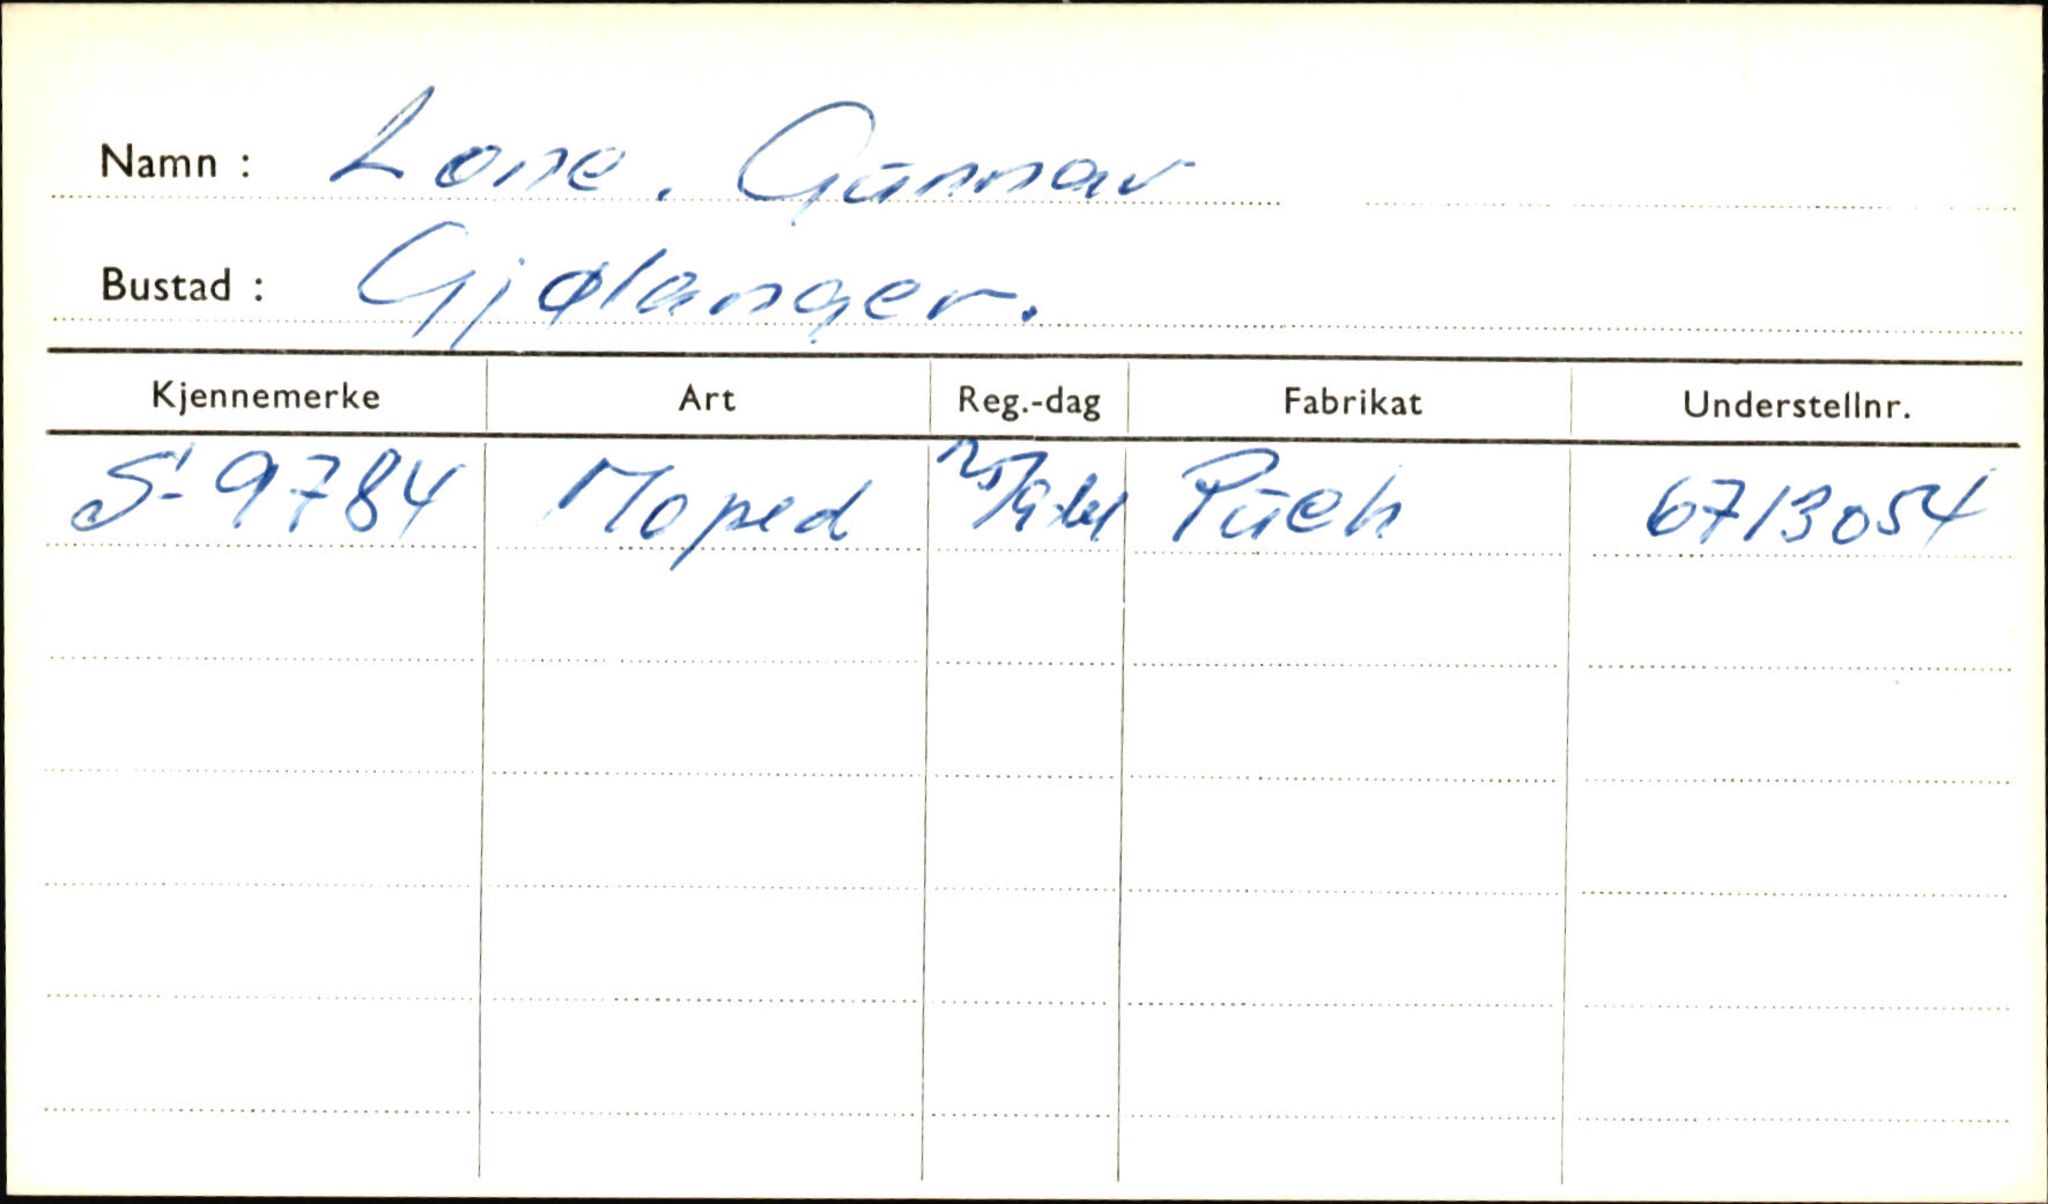 Namn : Lone. Gunnar
Bustad : Gjølanger.
Kjennemerke Art Reg.-dag Fabrikat Understellnr.
S-9784 Moped Puch 6713054